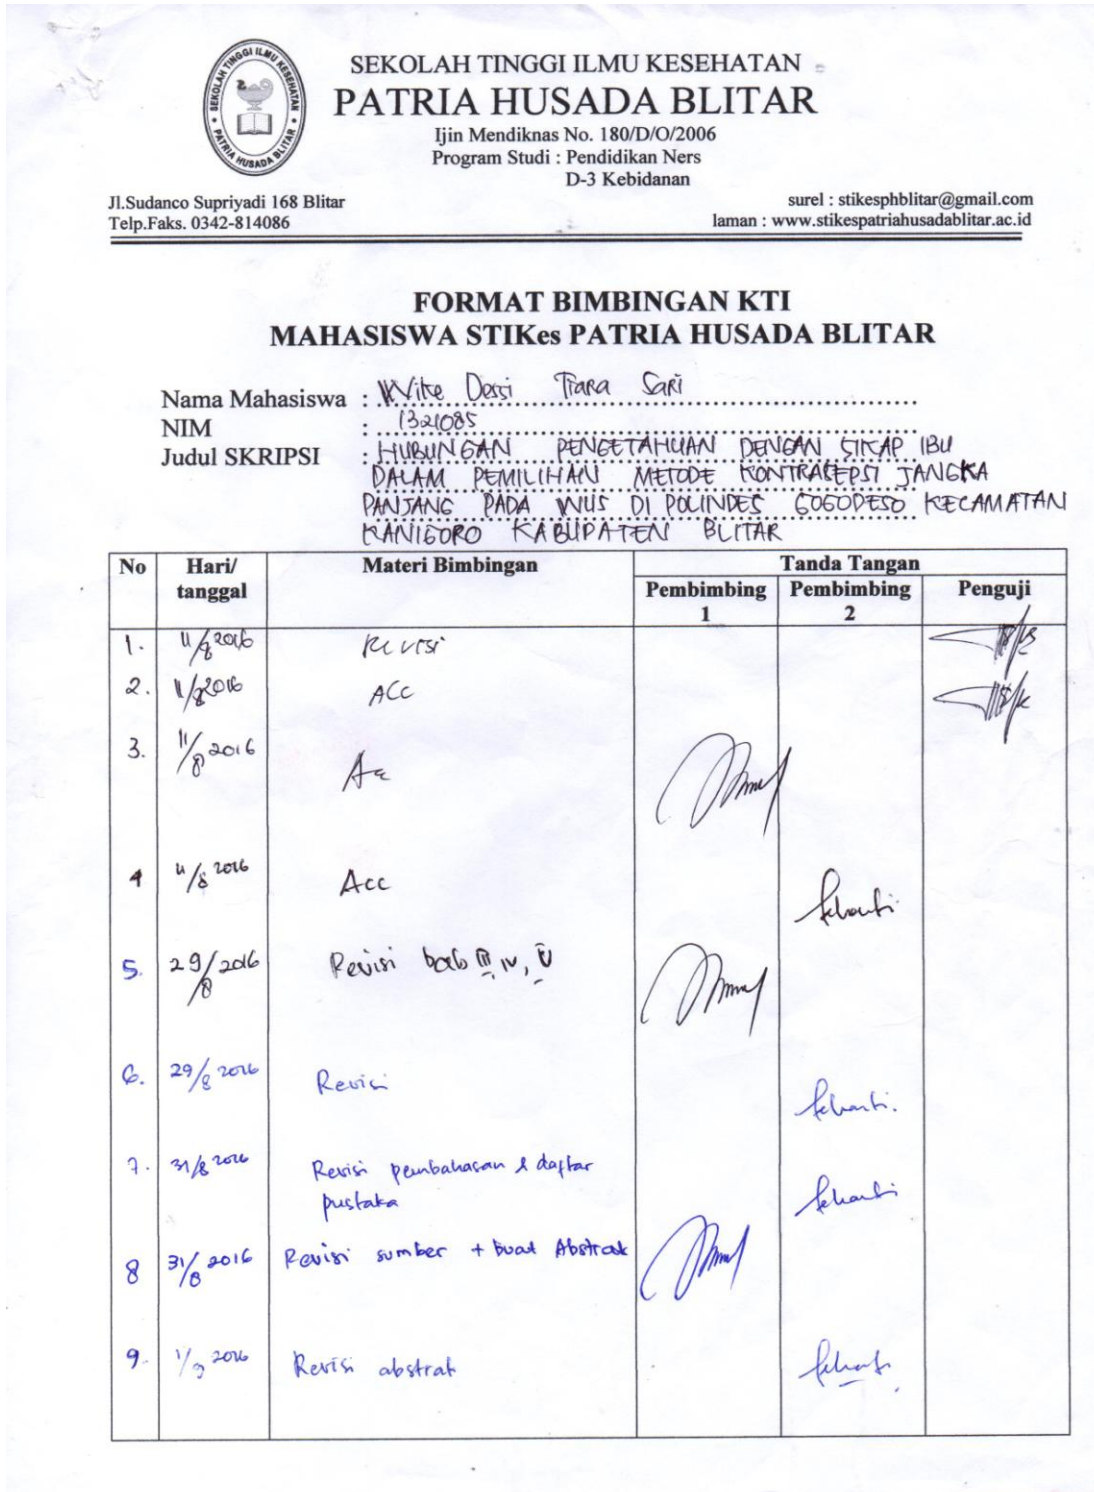 SEKOLAH TINGGI ILMU KESEHATAN
PATRIA HUSADA BLITAR
Ijin Mendiknas No. 180/D/O/2006
Program Studi : Pendidikan Ners
D-3 Kebidanan
SEKOLAH TINGGI ILMU KESEHATAN
PATRIA HUSADA BLITAR
Jl.Sudanco Supriyadi 168 Blitar
surel : stikesphblitar@gmail.com
Telp.Faks. 0342-814086
laman : www.stikespatriahusadablitar.ac.id
FORMAT BIMBINGAN KTI
MAHASISWA STIKes PATRIA HUSADA BLITAR
Nama Mahasiswa : Wike Dessi Tiara Sari
NIM : 1321085
Judul SKRIPSI : HUBUNGAN PENGETAHUAN DENGAN SIKAP IBU
DALAM PEMILIHAN METODE KONTRASEPSI JANGKA
PANJANG PADA WUS DI POLINDES GOGODESO KECAMATAN
KANIGORO KABUPATEN BLITAR
No Hari/ tanggal Materi Bimbingan Tanda Tangan
Pembimbing 1 Pembimbing 2 Penguji
1. 11/8 2016 Revisi
2. 11/8 2016 ACC
3. 11/8 2016 Acc
4 11/8 2016 Acc
5. 29/8 2016 Revisi bab III, IV, V
6. 29/8 2016 Revisi
7. 31/8 2016 Revisi pembahasan & daftar
pustaka
8 31/8 2016 Revisi sumber + buat Abstrak
9. 1/9 2016 Revisi abstrak